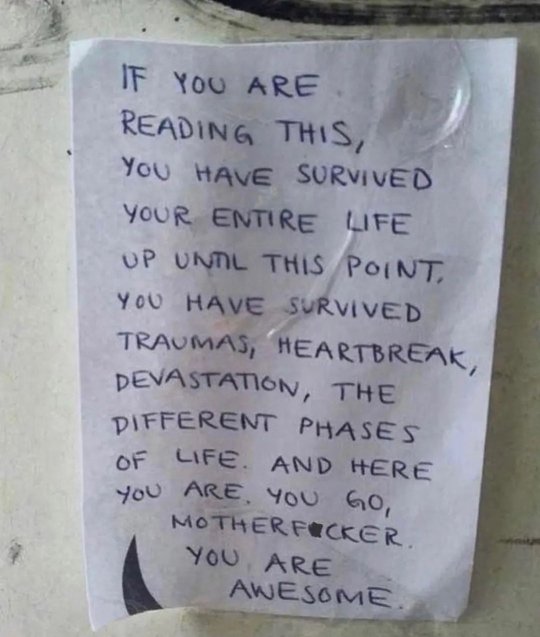 IF YOU ARE
READING THIS,
YOU HAVE SURVIVED
YOUR ENTIRE LIFE
UP UNTIL THIS POINT.
YOU HAVE SURVIVED
TRAUMAS, HEARTBREAK,
DEVASTATION, THE
DIFFERENT PHASES
OF LIFE. AND HERE
YOU ARE. YOU GO,
MOTHERF■CKER.
YOU ARE
AWESOME.